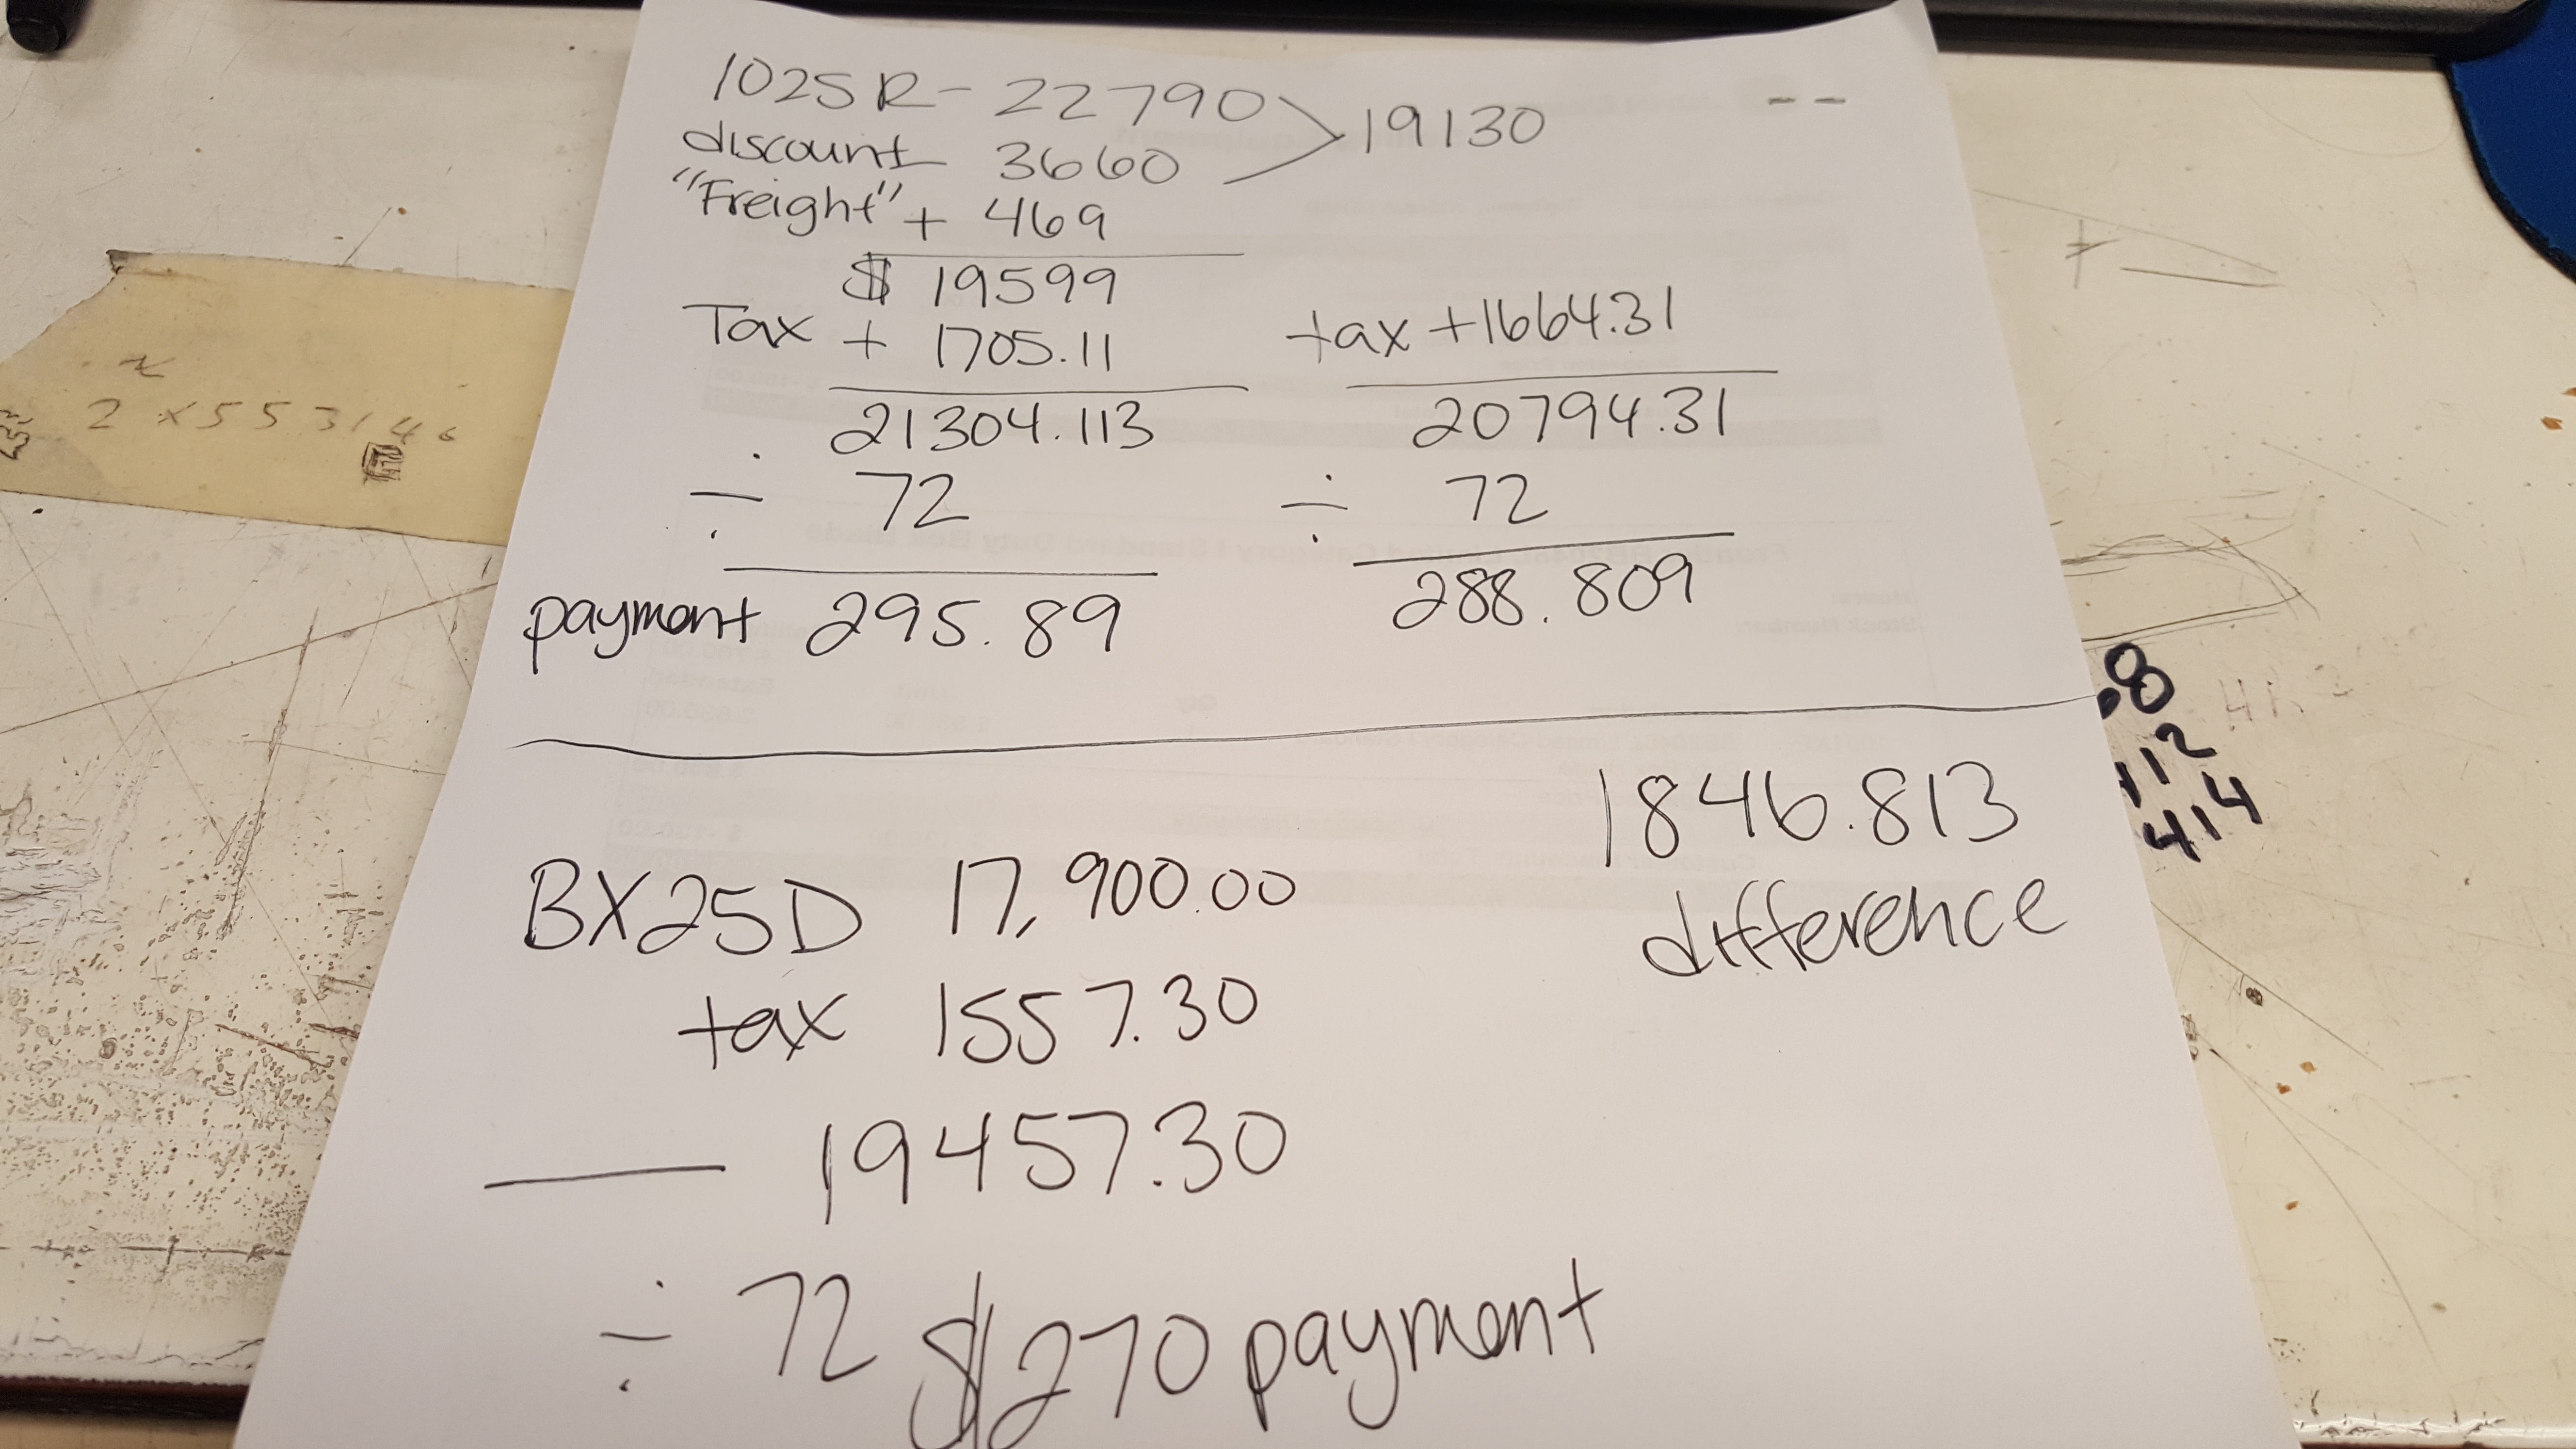 1025R - 22790 > 19130
discount - 3660
"Freight" + 469
$ 19599
Tax + 1705.11
21304.113
÷ 72
payment 295.89
tax + 1664.31
20794.31
÷ 72
288.809
1846.813
difference
BX25D 17,900.00
tax 1557.30
19457.30
÷ 72 $270 payment
2 x 553146
.8
112
414